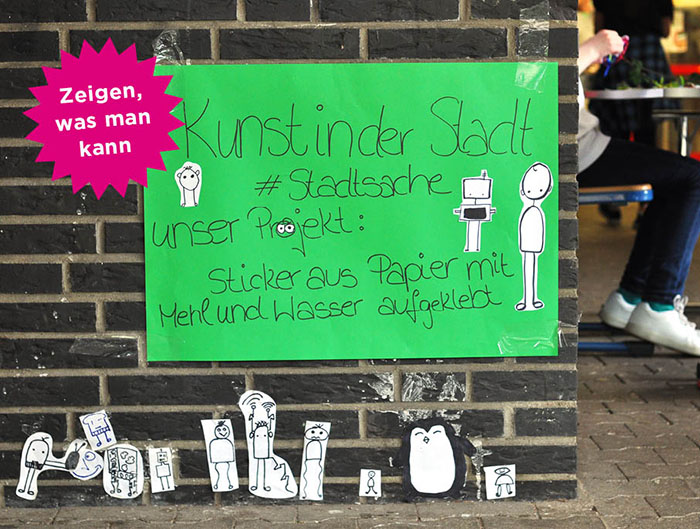 Zeigen,
was man
kann
Kunst in der Stadt
#Stadtsache
unser Projekt:
Sticker aus Papier mit
Mehl und Wasser aufgeklebt